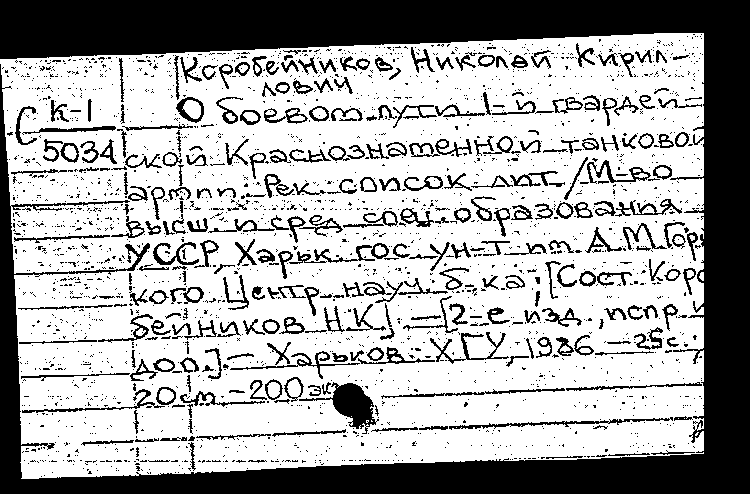 Коробейников, Николай Кирил-
лович
С К-1
5034
О боевом пути 1-й гвардей-
ской Краснознаменной танковой
армии: Рек. список лит. / М-во
высш. и сред. спец. образования
УССР, Харьк. гос. ун-т им. А.М.Горь
кого Центр. науч. б-ка; [Сост. Коро
бейников Н.К.]. — [2-е изд., испр. и
доп.]. — Харьков: ХГУ, 1986. — 25с.;
20см. — 200 экз